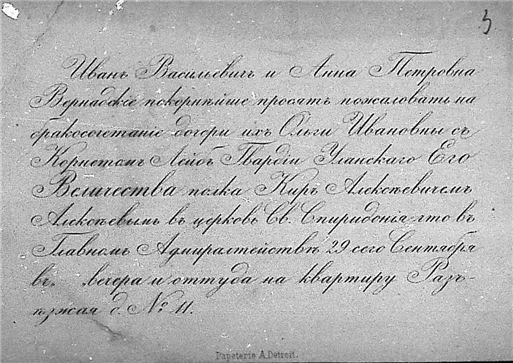 3
Иванъ Васильевичъ и Анна Петровна
Вернадскіе покорнѣйше просятъ пожаловать на
бракосочетаніе дочери ихъ Ольги Ивановны съ
Корнетомъ Лейбъ Гвардіи Уланскаго Его
Величества полка Киръ Алексѣевичемъ
Алексѣевымъ въ церковь Св. Спиридонія что въ
Главномъ Адмиралтействѣ 29 сего Сентября
въ вечера и оттуда на квартиру Разъ-
ѣзжая д. № 11.
Papeterie A. Detroit.